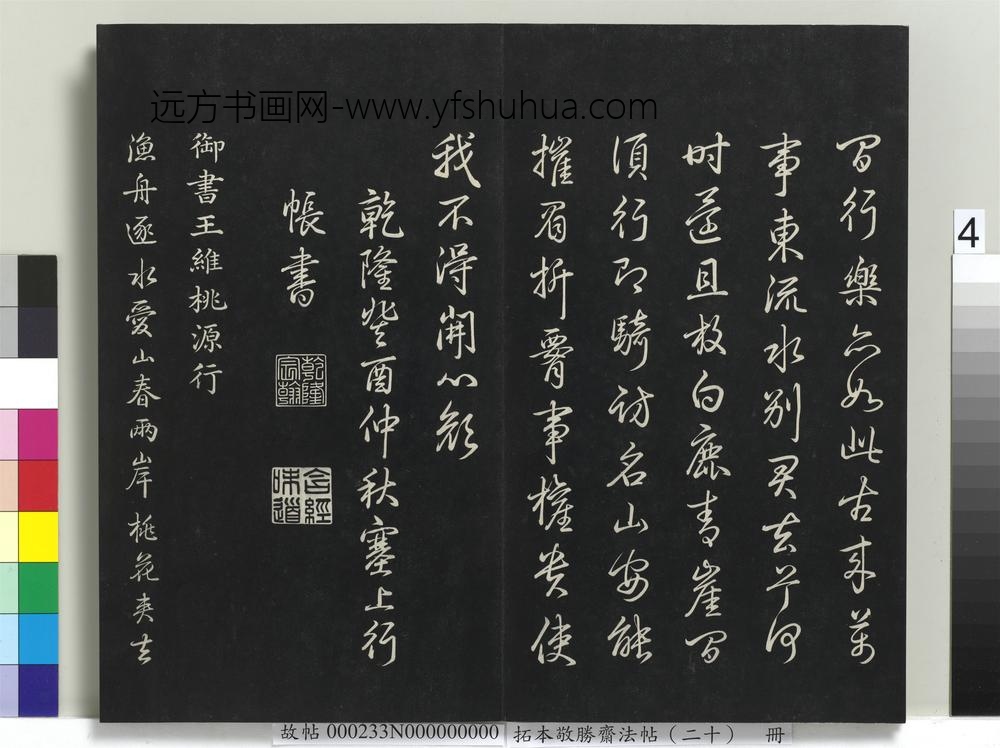 远方书画网-www.yfshuhua.com
間行樂亦如此古來萬
事東流水别君去兮何
时還且放白鹿青崖間
須行即騎訪名山安能
摧眉折腰事權貴使
我不得開心顔
乾隆癸酉仲秋塞上行
帳書
乾隆宸翰
含經味道
御書王維桃源行
漁舟逐水愛山春兩岸桃花夾去
4
故帖 000233N000000000 拓本敬勝齋法帖（二十） 冊